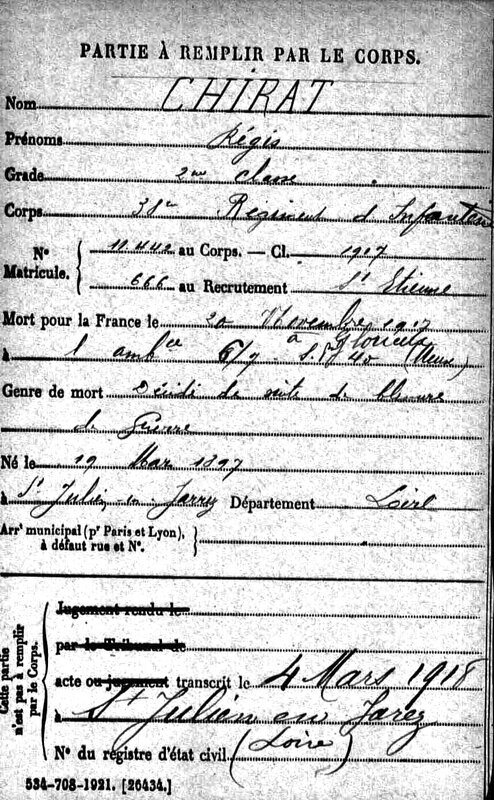 PARTIE À REMPLIR PAR LE CORPS.
Nom CHIRAT
Prénoms Régis
Grade 2me classe
Corps 38e Régiment d'Infanterie
Nº Matricule. { 11.442 au Corps. — Cl. 1917
666 au Recrutement St Etienne
Mort pour la France le 20 Novembre 1917
à l'ambce 6/7 S.P. 40 à (Meuse)
Genre de mort Décédé de suite de blessure
de Guerre
Né le 19 Mar 1897
à St Julien en Jarrez Département Loire
Arrt municipal (pr Paris et Lyon),
à défaut rue et Nº.
Cette partie
n'est pas à remplir
par le Corps.
Jugement rendu le
par le Tribunal de
acte ou jugement transcrit le 4 Mars 1918
à St Julien en Jarez
Nº du registre d'état civil (Loire)
534-708-1921. [26434.]